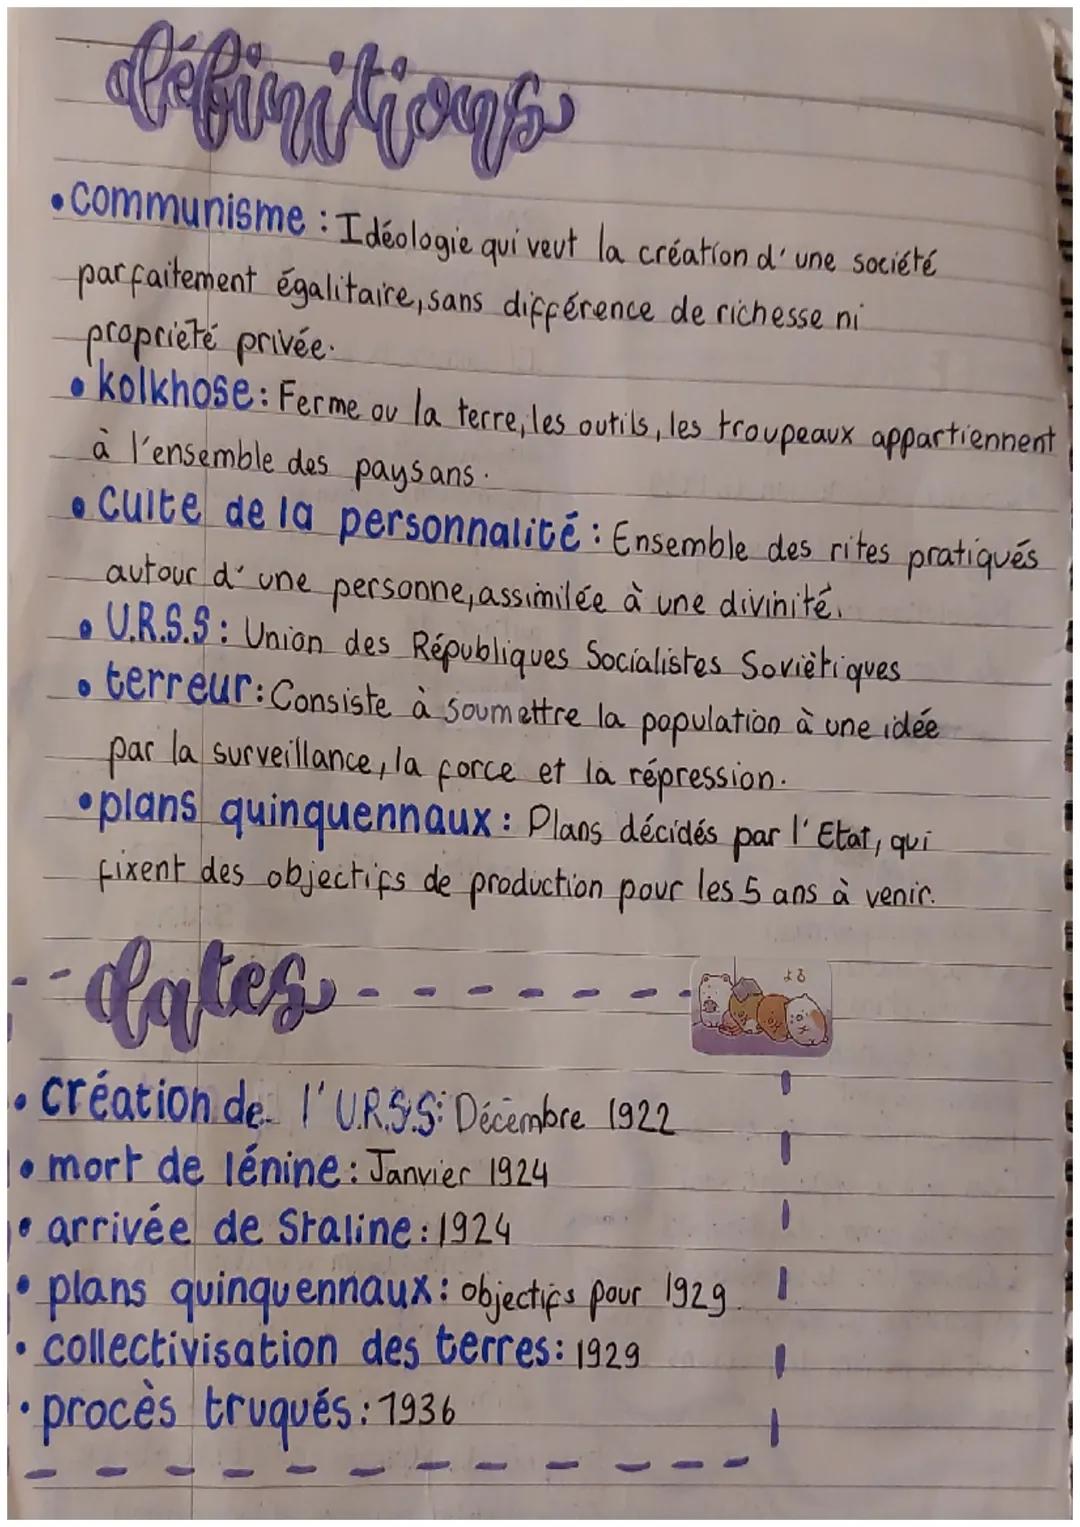 définitions
• communisme : Idéologie qui veut la création d'une société
parfaitement égalitaire, sans différence de richesse ni
propriété privée.
• kolkhose : Ferme ou la terre, les outils, les troupeaux appartiennent
à l'ensemble des paysans.
• Culte de la personnalité : Ensemble des rites pratiqués
autour d'une personne, assimilée à une divinité.
• U.R.S.S : Union des Républiques Socialistes Soviètiques
• terreur : Consiste à soumettre la population à une idée
par la surveillance, la force et la répression.
• plans quinquennaux : Plans décidés par l'Etat, qui
fixent des objectifs de production pour les 5 ans à venir.
dates
よる
• création de l'U.R.S.S : Décembre 1922
• mort de lénine : Janvier 1924
• arrivée de Staline : 1924
• plans quinquennaux : objectifs pour 1929
• collectivisation des terres : 1929
• procès truqués : 1936